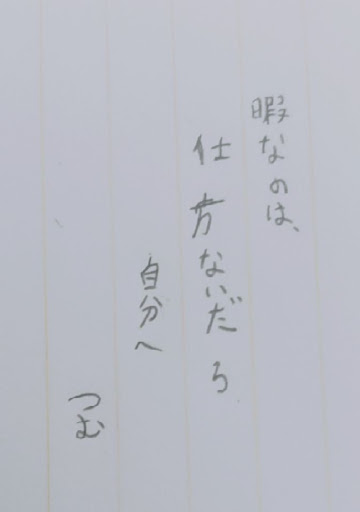 暇なのは、
仕方ないだろ
自分へ
つむ